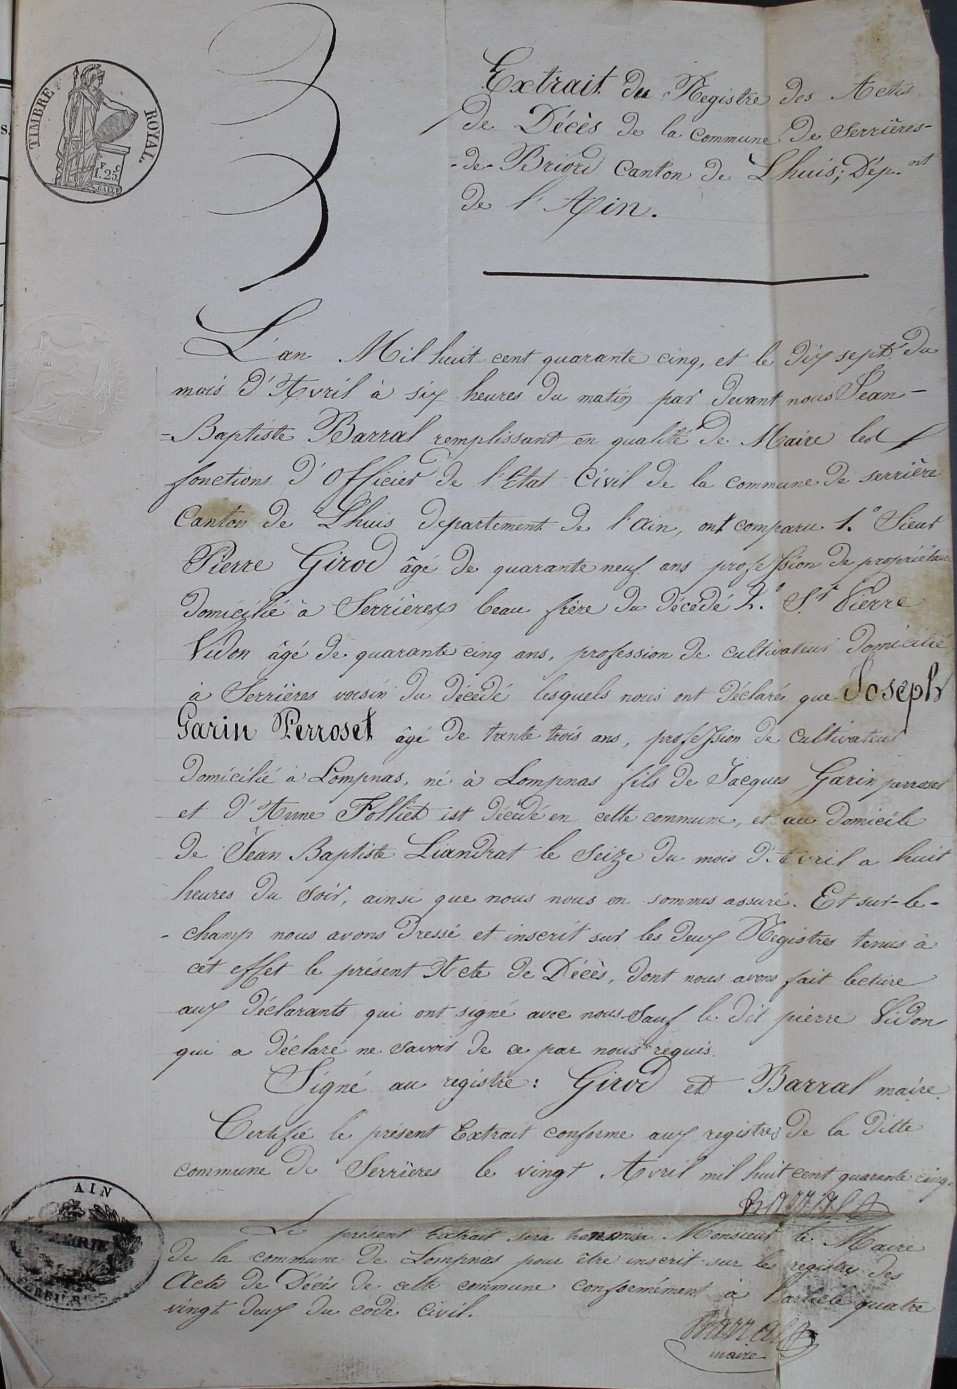 TIMBRE ROYAL.
1. 25
3
Extrait du Registre des Actes
de Décès de la commune de Serrières-
-de-Briord canton de Lhuis; Dép.nt
de l'Ain.
L'an Mil huit cent quarante cinq, et le dix sept du
mois d'Avril à six heures du matin par devant nous Jean-
=Baptiste Barral remplissant en qualité de Maire les
fonctions d'Officier de l'Etat Civil de la commune de serrière
Canton de Lhuis departement de l'ain, ont comparu 1.° Sieur
Pierre Girod âgé de quarante neuf ans profession de propriétaire
domicilié à Serrières beau frère du décédé 2.° Sr Pierre
Vidon âgé de quarante cinq ans, profession de cultivateur domicilié
à Serrières voisin du décédé lesquels nous ont déclaré que Joseph
Garin Perroset âgé de trente trois ans, profession de cultivateur
domicilié à Lompnas, né à Lompnas fils de Jacques Garin perroset
et d'Anne Folliet est décédé en cette commune, et au domicile
de Jean Baptiste Liandrat le seize du mois d'Avril a huit
heures du soir, ainsi que nous nous en sommes assuré. Et sur-le-
-champ nous avons dressé et inscrit sur les deux Registres tenus à
cet effet le présent Acte de Décès, dont nous avons fait lecture
aux déclarants qui ont signé avec nous sauf le dit pierre Vidon
qui a déclaré ne savoir de ce par nous requis.
Signé au registre: Girod et Barral maire.
Certifié le présent Extrait conforme aux registres de la ditte
commune de Serrières le vingt Avril mil huit cent quarante cinq.
Barral
Le présent Extrait sera transmis Monsieur le Maire
de la commune de Lompnas pour être inscrit sur les registres des
Actes de Décès de cette commune conformément à l'article quatre
vingt deux du code civil.
Barral
maire
AIN
MAIRIE